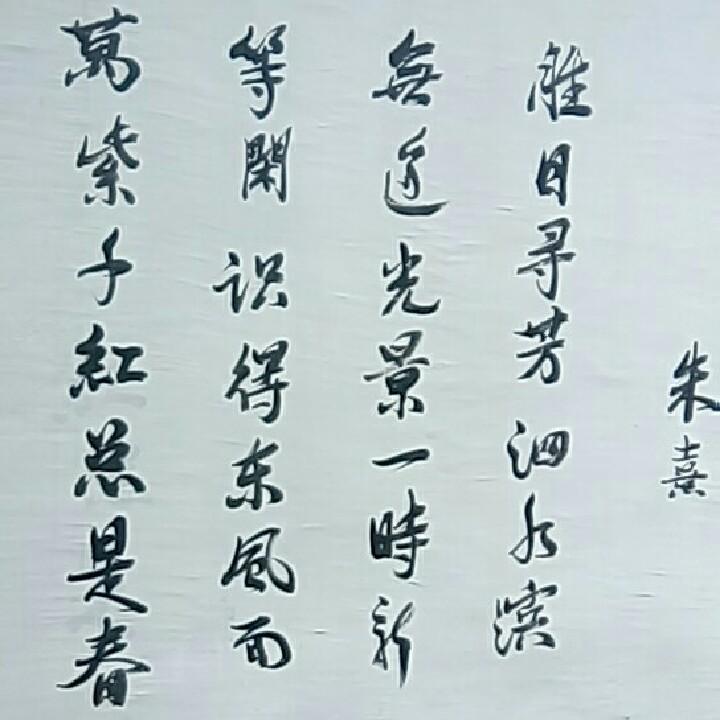 朱熹
日寻芳泗水濱
無边光景一時新
等閑识得东風面
萬紫千紅总是春